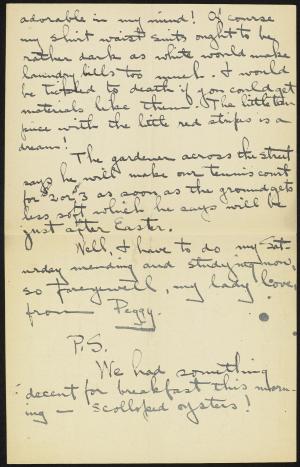 adorable in my mind! Of course
my shirt waist suits ought to be
rather dark as white would make
laundry bills too much. I would
be tickled to death if you could get
materials like them. The little tan
piece with the little red stripes is a
dream!
The gardener across the street
says he will make our tennis court
for $2 or $3 as soon as the ground gets
less soft which he says will be
just after Easter.
Well, I have to do my Sat-
urday mending and studying now,
so farewell, my lady love,
from Peggy.
P.S.
We had something
decent for breakfast this morn-
ing — scolloped oysters!